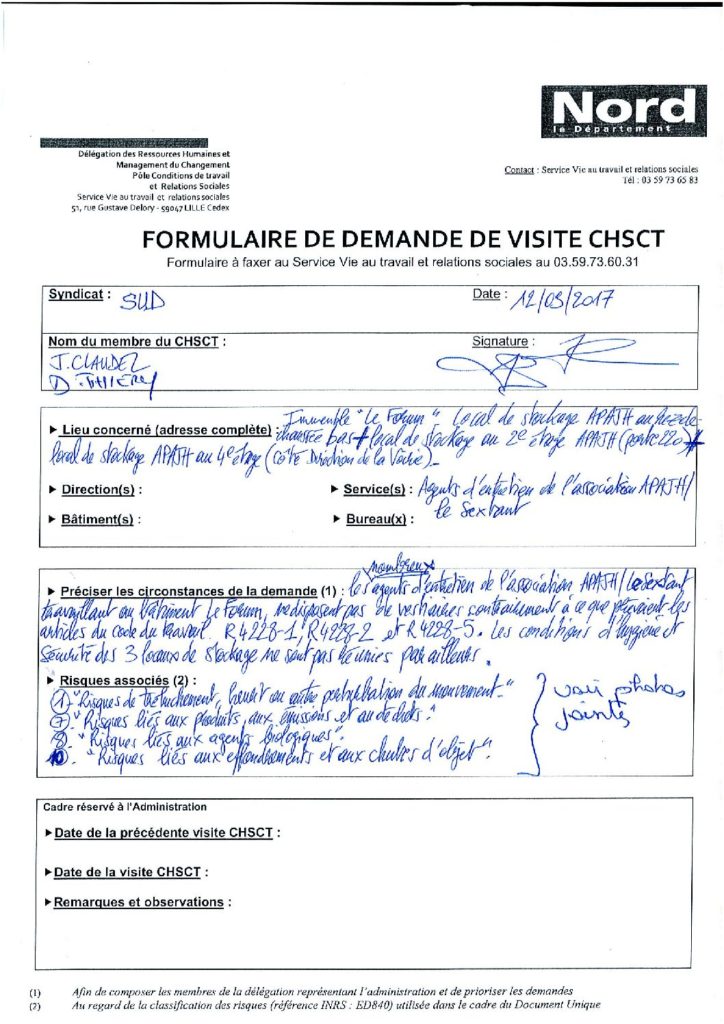 Nord
le Département
Délégation des Ressources Humaines et
Management du Changement
Pôle Conditions de travail
et Relations Sociales
Service Vie au travail et relations sociales
51, rue Gustave Delory - 59047 LILLE Cedex
Contact : Service Vie au travail et relations sociales
Tél : 03 59 73 65 83
FORMULAIRE DE DEMANDE DE VISITE CHSCT
Formulaire à faxer au Service Vie au travail et relations sociales au 03.59.73.60.31
Syndicat : SUD
Date : 12/09/2017
Nom du membre du CHSCT :
Signature :
J. CLAUDEL
D. THIERY
Immeuble "Le Forum" Local de stockage APAJH au rez de
► Lieu concerné (adresse complète) : chaussée bas + local de stockage au 2e étage APAJH (porte 220) +
local de stockage APAJH au 4e étage (côté Direction de la Voirie).
► Direction(s) :
► Service(s) : Agents d'entretien de l'association APAJH/
le Sextant
► Bâtiment(s) :
► Bureau(x) :
nombreux
► Préciser les circonstances de la demande (1) : les agents d'entretien de l'association APAJH/Le Sextant
travaillant au bâtiment Le Forum, ne disposent pas de vestiaires contrairement à ce que prévoient les
articles du code du travail R4228-1, R4228-2 et R4228-5. Les conditions d'hygiène et
sécurité des 3 locaux de stockage ne sont pas réunies par ailleurs.
► Risques associés (2) :
1 - "Risques de trébuchement, heurt ou autre perturbation du mouvement".
7 - "Risques liés aux produits, aux émissions et aux déchets".
8 - "Risques liés aux agents biologiques".
10 - "Risques liés aux effondrements et aux chutes d'objet".
voir photos
jointes
Cadre réservé à l'Administration
► Date de la précédente visite CHSCT :
► Date de la visite CHSCT :
► Remarques et observations :
(1) Afin de composer les membres de la délégation représentant l'administration et de prioriser les demandes
(2) Au regard de la classification des risques (référence INRS : ED840) utilisée dans le cadre du Document Unique